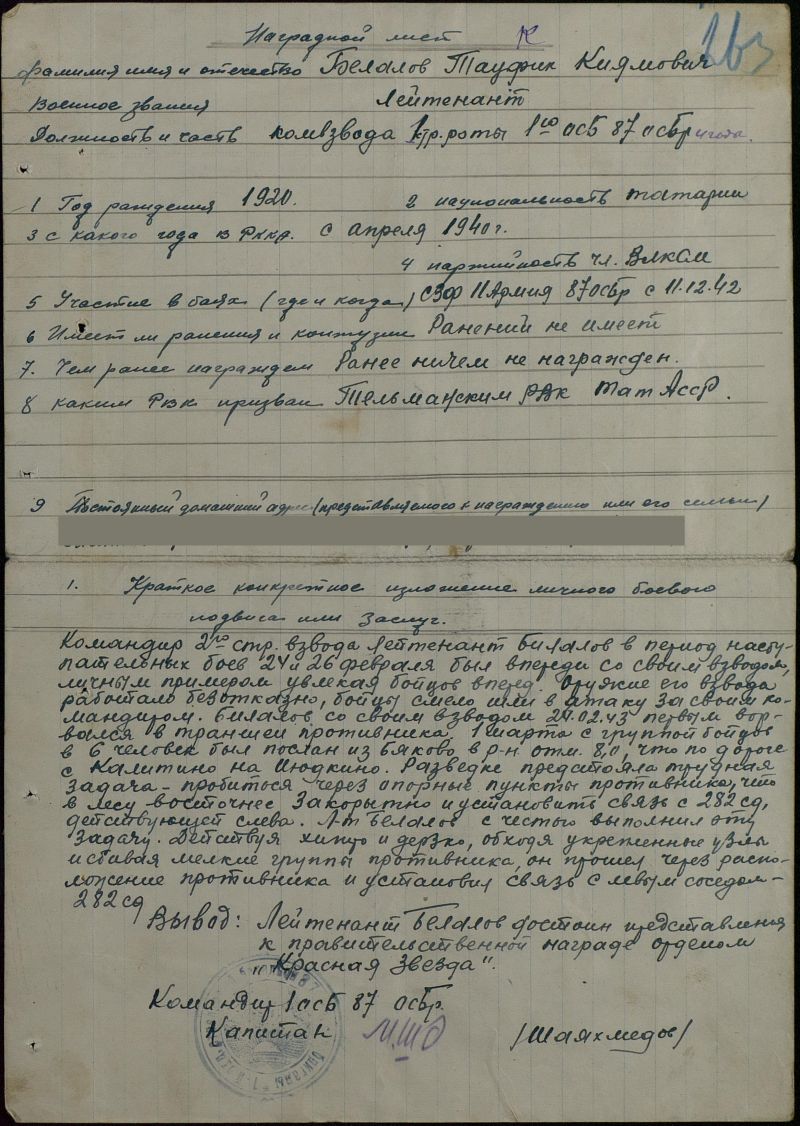 Наградной лист К 163
Фамилия имя и отчество Белалов Тауфик Киямович
Военное звания Лейтенант
Должность и часть комвзвода 1 стр. роты 1го осб 87 осбр
1 Год рождения 1920. 2 национальность татарин
3 с какого года в РККА. с апреля 1940 г.
4 партийность чл. ВЛКСМ
5 Участие в боях (где и когда) СЗФ 11 Армия 87 осбр с 11.12.42
6 Имеет ли ранения и контузии Ранений не имеет
7. Чем ранее награжден Ранее ничем не награжден.
8 каким РВК призван Тельманским РВК Тат АССР.
9 Постоянный домашний адрес (представляемого к награждению или его семьи)
1. Краткое конкретное изложение личного боевого
подвига или заслуг.
Командир 2го стр. взвода Лейтенант Билалов в период насту-
пательных боев 24 и 26 февраля был впереди со своим взводом,
личным примером увлекая бойцов вперед. Оружие его взвода
работало безотказно, бойцы смело шли в атаку за своим ко-
мандиром. Билалов со своим взводом 24.02.43 первым вор-
вался в траншеи противника. 1 марта с группой бойцов
в 6 человек был послан из Бяково в р-н отм. 8,0, что по дороге
с Калиткино на Июдкино. Разведке предстояла трудная
задача - пробиться через опорные пункты противника, что
в лесу восточнее Закорытно и установить связь с 282 сд,
действующей слева. Л-т Белалов с честью выполнил эту
задачу. Действуя хитро и дерзко, обходя укрепленные узлы
и сбивая мелкие группы противника, он прошел через распо-
ложение противника и установил связь с левым соседом -
282 сд
Вывод: Лейтенант Белалов достоин представления
к правительственной награде орденом
"Красная Звезда".
Командир 1 осб 87 осбр.
Капитан /Шаяхмедов/